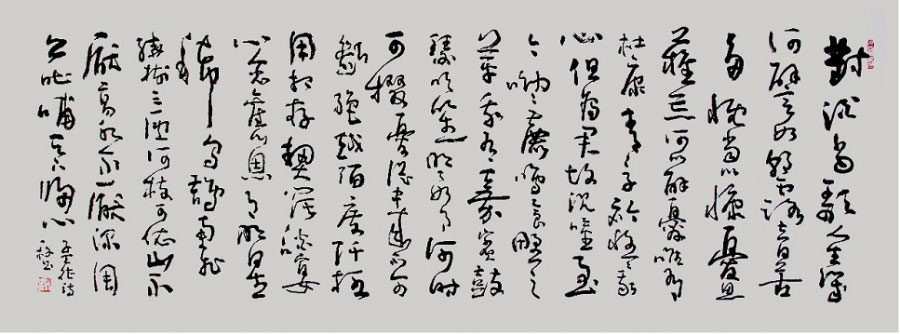 對酒當歌人生幾
何譬如朝露去日苦
多慨當以慷憂思
難忘何以解憂唯有
杜康青青子衿悠悠我
心但為君故沉吟至
今呦呦鹿鳴食野之
苹我有嘉賓鼓
瑟吹笙明明如月何時
可掇憂從中來不可
斷絕越陌度阡枉
用相存契闊談宴
心念舊恩月明星
稀烏鵲南飛
繞樹三匝何枝可依山不
厭高水不厭深周
公吐哺天下歸心